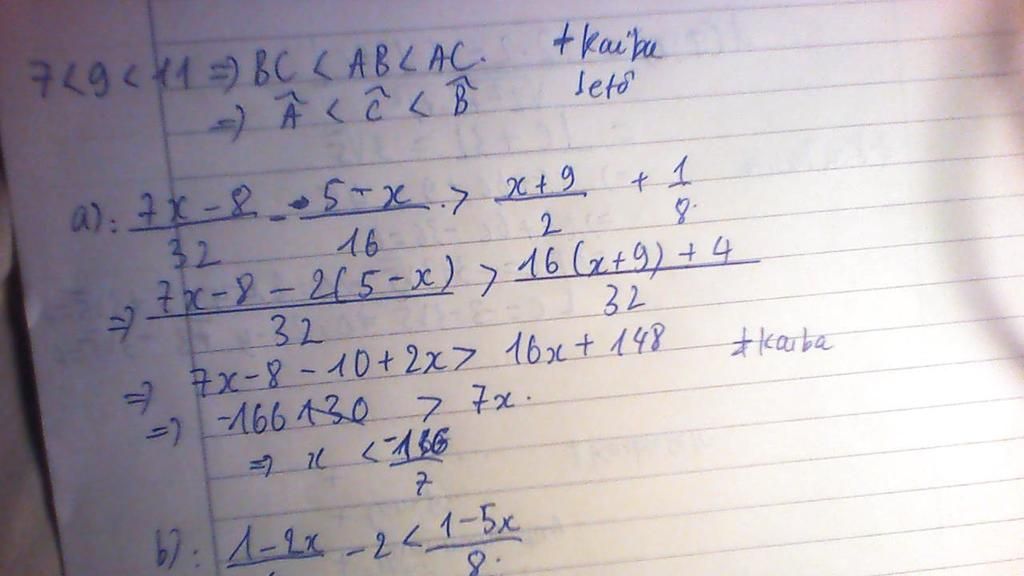 7 < 9 < 11 => BC < AB < AC. + kaiba
=> Â < Ĉ < B̂
a): (7x - 8)/32 - (5 - x)/16 > (x + 9)/2 + 1/8
=> (7x - 8 - 2(5 - x))/32 > (16(x + 9) + 4)/32
=> 7x - 8 - 10 + 2x > 16x + 148 + kaiba
=> -166 + 30 > 7x.
=> x < -136/7
b): 1 - 2x - 2 < (1 - 5x)/8.